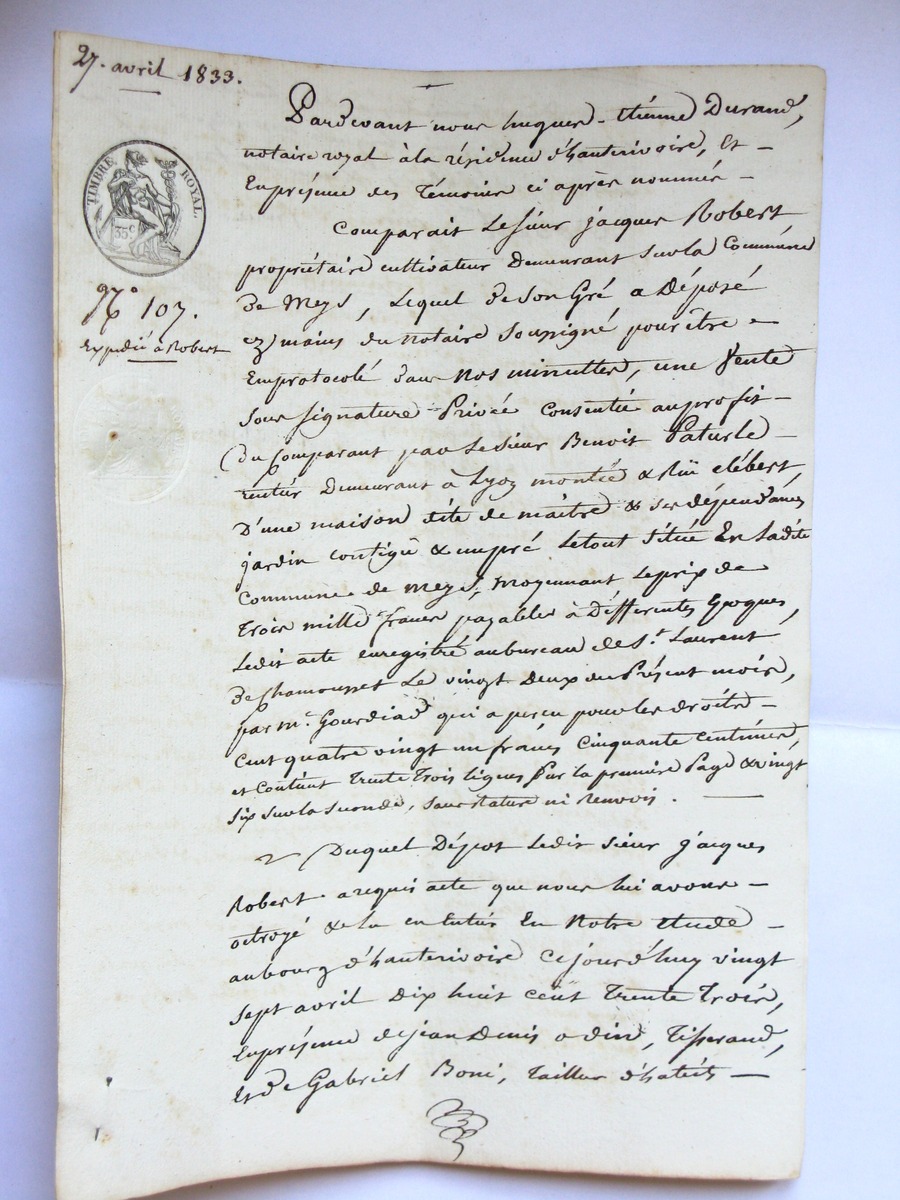 27. avril 1833.
Pardevant nous hugues-étienne Durand,
notaire royal à la résidence d'hauterivoire, Et
En présence des Témoins ci après nommés
TIMBRE ROYAL.
35c
Comparait Le sieur jacques Robert
propriétaire cultivateur Demeurant sur la Commune
de Meys, Lequel de son Gré a Déposé
No 107.
ez mains du notaire soussigné pour être
Expédié à Robert
Emprotocolé dans nos minuttes, une Vente
sous signature Privée Consentie au profit
du Comparant par Le sieur Benoit Paturle
rentier Demeurant à Lyon montée & Rüe
D'une maison dite de maître & ses dépendances
jardin contigü & un pré Le tout situé En Ladite
Commune de Meys, moyennant Le prix de
Trois mille francs payables à Différentes Epoques,
Ledit acte enregistré au bureau de St. Laurent
de Chamousset Le vingt Deux du Présent mois,
par Mr. Gourdiad qui a perçu pour les droits
Cent quatre vingt un francs Cinquante Centimes,
et Contient Trente Trois lignes sur la premiere Page & vingt
six sur la seconde, sans rature ni Renvois.
Duquel Dépot Ledit sieur jacques
Robert a requis acte que nous lui avons
octroyé & lu en Entier En Notre étude
au bourg d'hauterivoire Cejourd'huy vingt
sept avril Dix huit cent Trente Trois,
En présence de jean Denis odin, Tisserand,
Et de Gabriel Boni, Tailleur d'habits